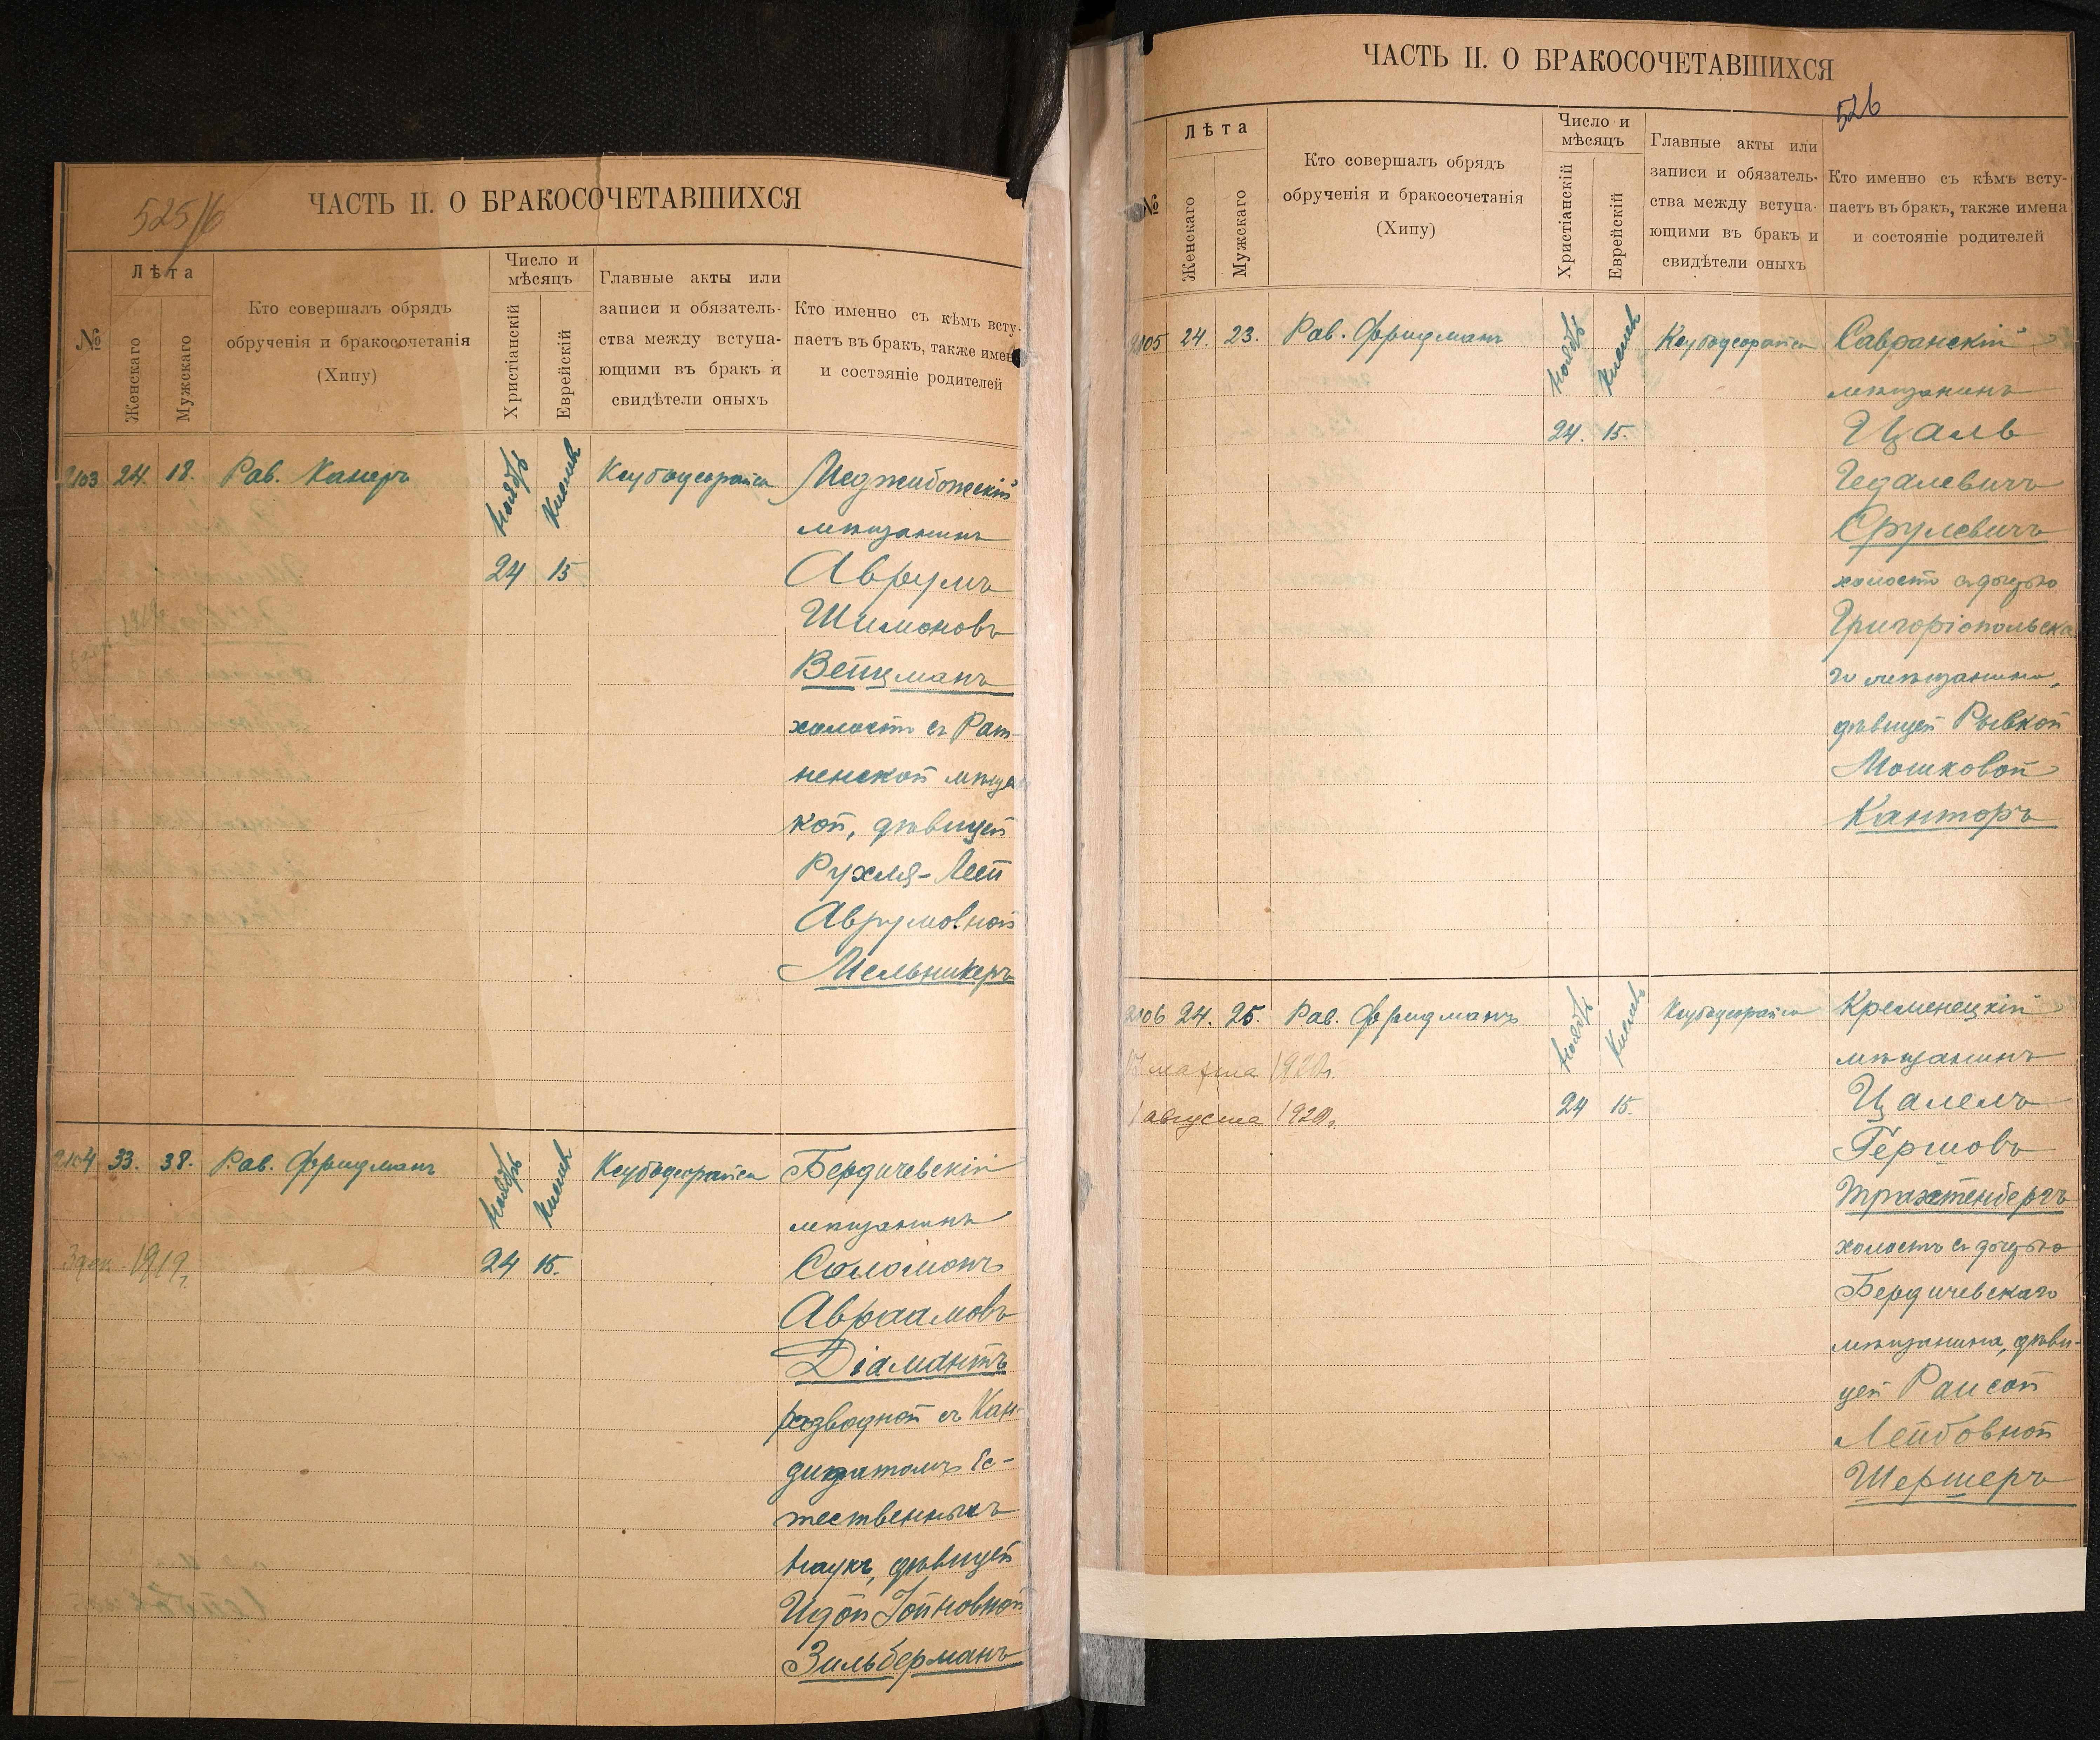 525/б
ЧАСТЬ II. О БРАКОСОЧЕТАВШИХСЯ
№
Лѣта
Женскаго
Мужскаго
Кто совершалъ обрядъ
обрученія и бракосочетанія
(Хипу)
Число и
мѣсяцъ
Христіанскій
Еврейскій
Главные акты или
записи и обязатель-
ства между вступа-
ющими въ бракъ и
свидѣтели оныхъ
Кто именно съ кѣмъ всту-
паетъ въ бракъ, также имен
и состэяніе родителей
2103 24. 18. Рав. Канеръ Ноябрь Кислевъ Ксубоусорайса Меджибожскій
мѣщанинъ
24 15 Аврумъ
Шимоновъ
Вейцманъ
холостъ съ Рат-
ненской мѣщан
кой, дѣвицей
Рухля-Леей
Аврумовной
Мельникеръ
2104 33. 38. Рав. Фридманъ Ноябрь Кислевъ Ксубоусорайса Бердичевскій
мѣщанинъ
3 дек. 1919. 24 15. Соломонъ
Авраамовъ
Діамантъ
разводной съ Кан-
дидатомъ Ес-
тественныхъ
наукъ, дѣвицей
Идой Іойновной
Зильберманъ
ЧАСТЬ II. О БРАКОСОЧЕТАВШИХСЯ
526
№
Лѣта
Женскаго
Мужскаго
Кто совершалъ обрядъ
обрученія и бракосочетанія
(Хипу)
Число и
мѣсяцъ
Христіанскій
Еврейскій
Главные акты или
записи и обязатель-
ства между вступа-
ющими въ бракъ и
свидѣтели оныхъ
Кто именно съ кѣмъ всту-
паетъ въ бракъ, также имена
и состояніе родителей
2105 24. 23. Рав. Фридманъ Ноябрь Кислевъ Ксубоусорайса Савранскій
мѣщанинъ
24. 15. Цаль
Гедалевичъ
Срулевичъ
холостъ съ дочерью
Григоріопольска
го мѣщанина,
дѣвицей Рывкой
Мошковой
Канторъ
2106 24. 25. Рав. Фридманъ Ноябрь Кислевъ Ксубоусорайса Кременецкій
мѣщанинъ
17 марта 1920г.
1 августа 1920г. 24 15. Цалелъ
Гершовъ
Трахтенбергъ
холостъ съ дочерью
Бердичевскаго
мѣщанина, дѣви-
цей Раисой
Лейбовной
Шершеръ